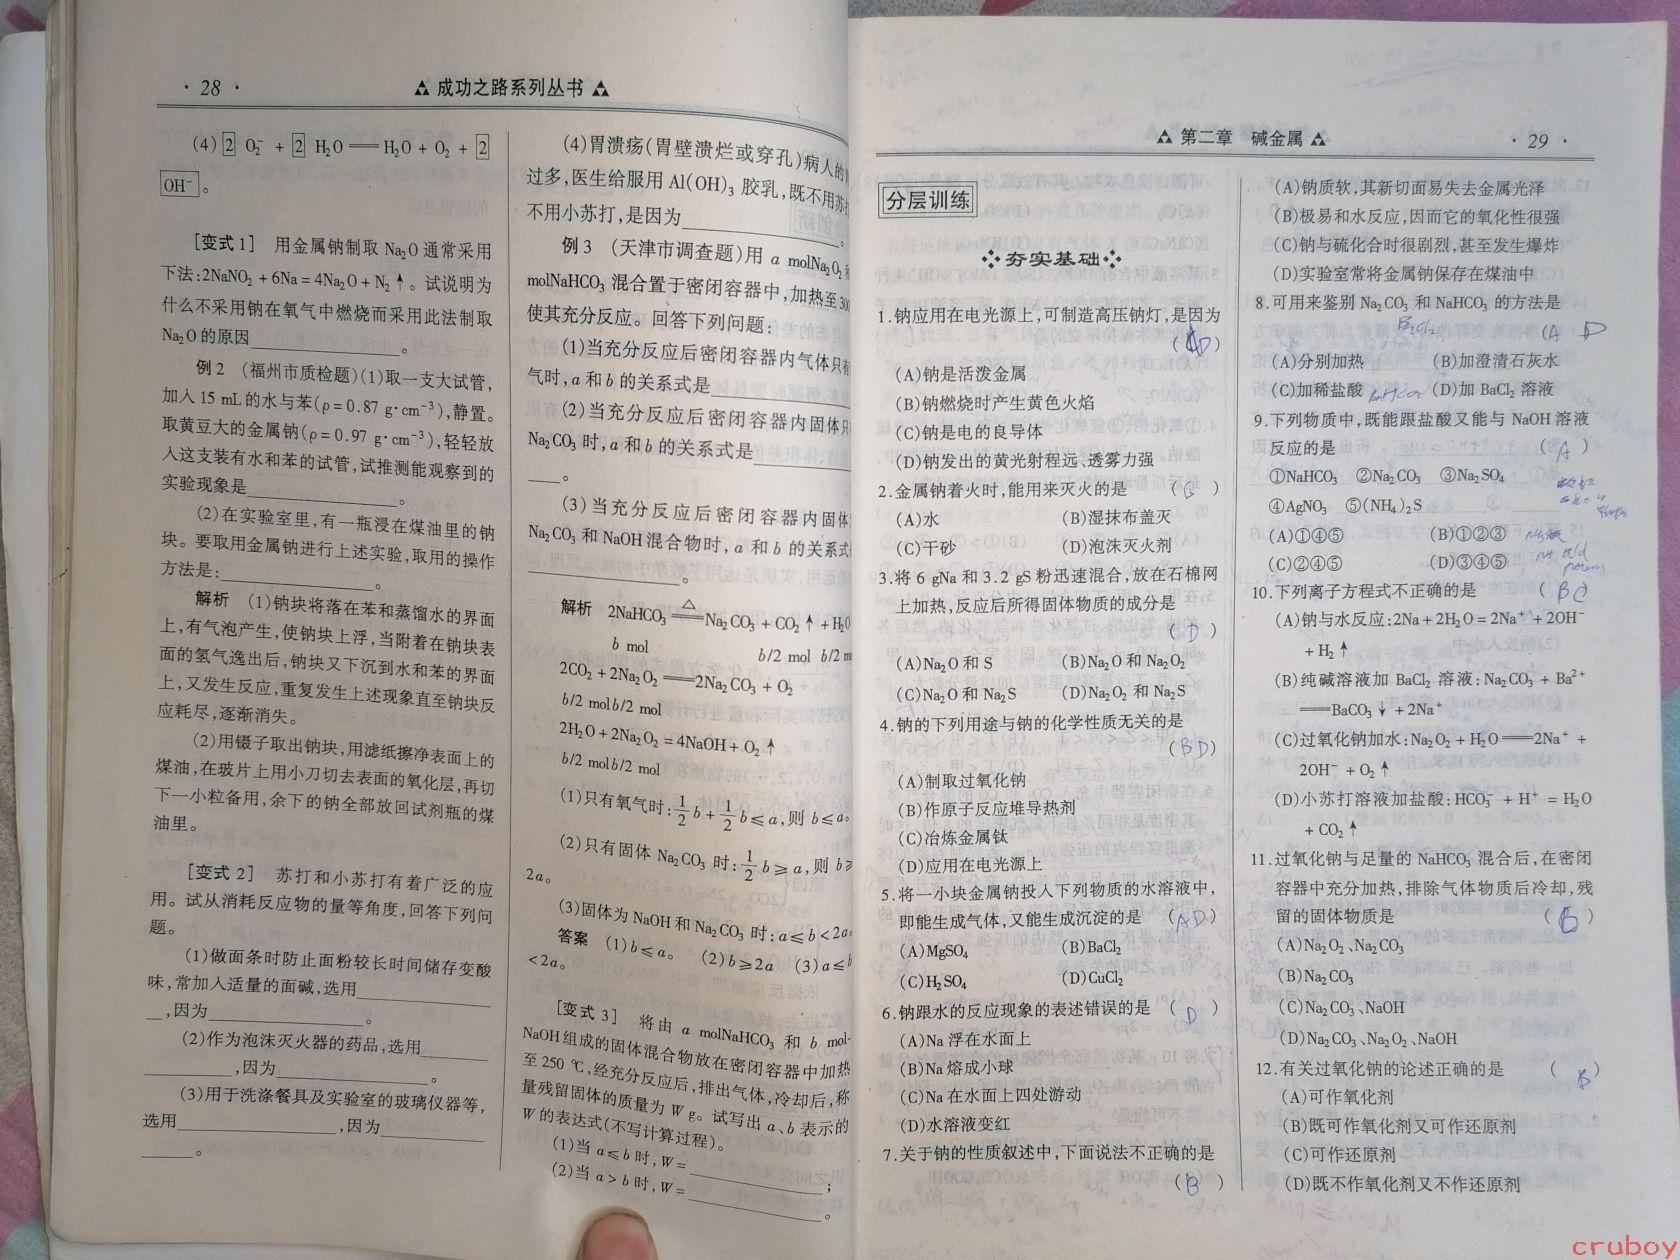 · 28 ·
成功之路系列丛书
(4) 2 O₂⁻ + 2 H₂O ══ H₂O + O₂ + 2
OH⁻ 。
[变式1] 用金属钠制取 Na₂O 通常采用
下法:2NaNO₂ + 6Na = 4Na₂O + N₂↑。试说明为
什么不采用钠在氧气中燃烧而采用此法制取
Na₂O 的原因________。
例2 (福州市质检题)(1)取一支大试管,
加入 15 mL的水与苯(ρ=0.87 g·cm⁻³),静置。
取黄豆大的金属钠(ρ=0.97 g·cm⁻³),轻轻放
入这支装有水和苯的试管,试推测能观察到的
实验现象是________。
(2)在实验室里,有一瓶浸在煤油里的钠
块。要取用金属钠进行上述实验,取用的操作
方法是:________。
解析 (1)钠块将落在苯和蒸馏水的界面
上,有气泡产生,使钠块上浮,当附着在钠块表
面的氢气逸出后,钠块又下沉到水和苯的界面
上,又发生反应,重复发生上述现象直至钠块反
应耗尽,逐渐消失。
(2)用镊子取出钠块,用滤纸擦净表面上的
煤油,在玻片上用小刀切去表面的氧化层,再切
下一小粒备用,余下的钠全部放回试剂瓶的煤
油里。
[变式2] 苏打和小苏打有着广泛的应
用。试从消耗反应物的量等角度,回答下列问
题。
(1)做面条时防止面粉较长时间储存变酸
味,常加入适量的面碱,选用________
__,因为________。
(2)作为泡沫灭火器的药品,选用____
________,因为________。
(3)用于洗涤餐具及实验室的玻璃仪器等,
选用________,因为________
____。
(4)胃溃疡(胃壁溃烂或穿孔)病人的
过多,医生给服用 Al(OH)₃ 胶乳,既不用苏
不用小苏打,是因为________。
例3 (天津市调查题)用 a molNa₂O₂
molNaHCO₃ 混合置于密闭容器中,加热至 300
使其充分反应。回答下列问题:
(1)当充分反应后密闭容器内气体只有
气时,a 和 b 的关系式是________
(2)当充分反应后密闭容器内固体只
Na₂CO₃ 时,a 和 b 的关系式是________
__。
(3)当充分反应后密闭容器内固体
Na₂CO₃ 和 NaOH 混合物时,a 和 b 的关系式
________。
解析 2NaHCO₃ ══△══ Na₂CO₃ + CO₂↑ + H₂O
b mol b/2 mol b/2 m
2CO₂ + 2Na₂O₂ ══ 2Na₂CO₃ + O₂
b/2 molb/2 mol
2H₂O + 2Na₂O₂ = 4NaOH + O₂↑
b/2 molb/2 mol
(1)只有氧气时:1/2 b + 1/2 b ≤ a,则 b ≤ a。
(2)只有固体 Na₂CO₃ 时:1/2 b ≥ a,则 b ≥
2a。
(3)固体为 NaOH 和 Na₂CO₃ 时:a ≤ b < 2a
答案 (1)b ≤ a。 (2)b ≥ 2a (3)a ≤ b
< 2a。
[变式3] 将由 a molNaHCO₃ 和 b mol
NaOH 组成的固体混合物放在密闭容器中加热
至 250 ℃,经充分反应后,排出气体,冷却后,称
量残留固体的质量为 W g。试写出 a、b 表示的
W 的表达式(不写计算过程)。
(1)当 a ≤ b 时,W = ________;
(2)当 a > b 时,W = ________。
第二章 碱金属
· 29 ·
分层训练
夯实基础
1.钠应用在电光源上,可制造高压钠灯,是因为
( D )
(A)钠是活泼金属
(B)钠燃烧时产生黄色火焰
(C)钠是电的良导体
(D)钠发出的黄光射程远、透雾力强
2.金属钠着火时,能用来灭火的是 ( )
(A)水 (B)湿抹布盖灭
(C)干砂 (D)泡沫灭火剂
3.将 6 gNa 和 3.2 gS 粉迅速混合,放在石棉网
上加热,反应后所得固体物质的成分是
( D )
(A)Na₂O 和 S (B)Na₂O 和 Na₂O₂
(C)Na₂O 和 Na₂S (D)Na₂O₂ 和 Na₂S
4.钠的下列用途与钠的化学性质无关的是
( BD )
(A)制取过氧化钠
(B)作原子反应堆导热剂
(C)冶炼金属钛
(D)应用在电光源上
5.将一小块金属钠投入下列物质的水溶液中,
即能生成气体,又能生成沉淀的是 ( AD )
(A)MgSO₄ (B)BaCl₂
(C)H₂SO₄ (D)CuCl₂
6.钠跟水的反应现象的表述错误的是 ( D )
(A)Na 浮在水面上
(B)Na 熔成小球
(C)Na 在水面上四处游动
(D)水溶液变红
7.关于钠的性质叙述中,下面说法不正确的是
( B )
(A)钠质软,其新切面易失去金属光泽
(B)极易和水反应,因而它的氧化性很强
(C)钠与硫化合时很剧烈,甚至发生爆炸
(D)实验室常将金属钠保存在煤油中
8.可用来鉴别 Na₂CO₃ 和 NaHCO₃ 的方法是
(A D
(A)分别加热 (B)加澄清石灰水
(C)加稀盐酸 (D)加 BaCl₂ 溶液
9.下列物质中,既能跟盐酸又能与 NaOH 溶液
反应的是 ( A )
①NaHCO₃ ②Na₂CO₃ ③Na₂SO₄
④AgNO₃ ⑤(NH₄)₂S
(A)①④⑤ (B)①②③
(C)②④⑤ (D)③④⑤
10.下列离子方程式不正确的是 ( BC
(A)钠与水反应:2Na + 2H₂O = 2Na⁺ + 2OH⁻
+ H₂↑
(B)纯碱溶液加 BaCl₂ 溶液:Na₂CO₃ + Ba²⁺
══BaCO₃↓ + 2Na⁺
(C)过氧化钠加水:Na₂O₂ + H₂O══2Na⁺ +
2OH⁻ + O₂↑
(D)小苏打溶液加盐酸:HCO₃⁻ + H⁺ = H₂O
+ CO₂↑
11.过氧化钠与足量的 NaHCO₃ 混合后,在密闭
容器中充分加热,排除气体物质后冷却,残
留的固体物质是 ( B )
(A)Na₂O₂、Na₂CO₃
(B)Na₂CO₃
(C)Na₂CO₃、NaOH
(D)Na₂CO₃、Na₂O₂、NaOH
12.有关过氧化钠的论述正确的是 ( B )
(A)可作氧化剂
(B)既可作氧化剂又可作还原剂
(C)可作还原剂
(D)既不作氧化剂又不作还原剂
cruboy